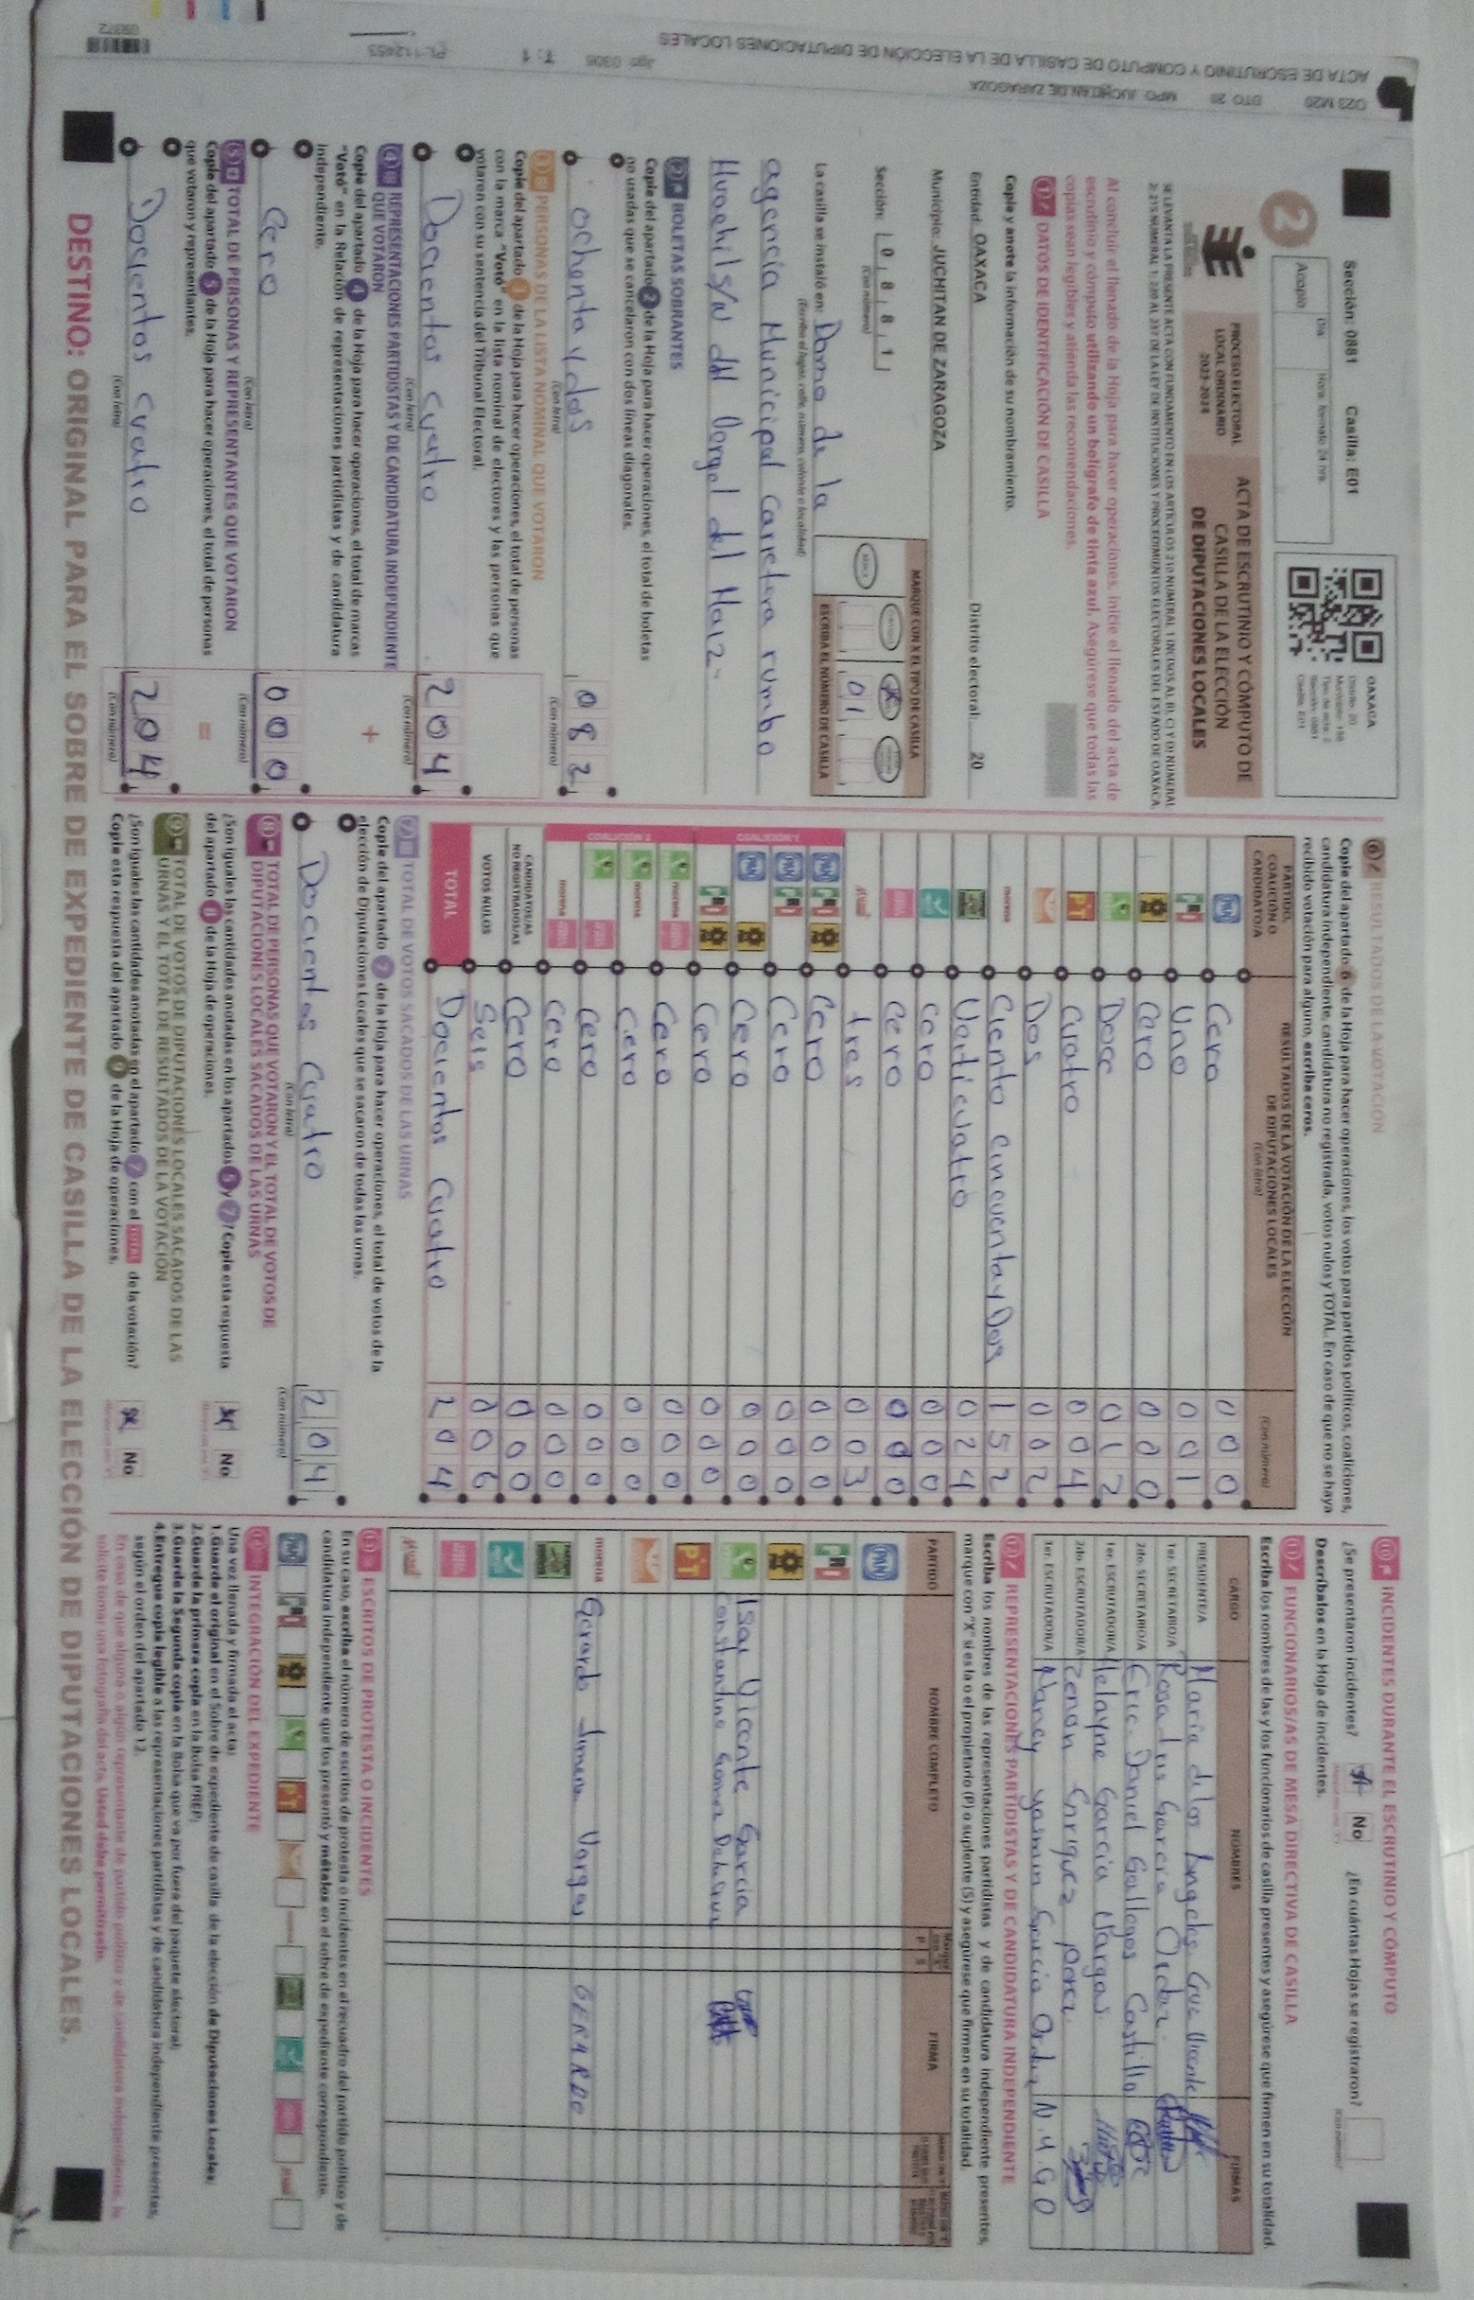 D23 M20 DTO 20 MPO. JUCHITAN DE ZARAGOZA
ACTA DE ESCRUTINIO Y CÓMPUTO DE CASILLA DE LA ELECCIÓN DE DIPUTACIONES LOCALES
T: 1
Sección: 0881 Casilla: E01
2
Acopio
Día
Hora: formato 24 hrs.
OAXACA
Distrito: 20
Sección: 0881
Casilla: E01
PROCESO ELECTORAL
LOCAL ORDINARIO
2023-2024
ACTA DE ESCRUTINIO Y CÓMPUTO DE
CASILLA DE LA ELECCIÓN
DE DIPUTACIONES LOCALES
Al concluir el llenado de la Hoja para hacer operaciones, inicie el llenado del acta de
escrutinio y cómputo utilizando un bolígrafo de tinta azul. Asegúrese que todas las
copias sean legibles y atienda las recomendaciones.
1 DATOS DE IDENTIFICACIÓN DE CASILLA
Copie y anote la información de su nombramiento.
Entidad: OAXACA Distrito electoral: 20
Municipio: JUCHITAN DE ZARAGOZA
Sección: 0 8 8 1
(Con número)
MARQUE CON X EL TIPO DE CASILLA
ESCRIBA EL NÚMERO DE CASILLA
01
La casilla se instaló en: Domo de la
(Escriba el lugar, calle, número, colonia o localidad)
agencia Municipal carretera rumbo
Huachil S/N del Vergel del Maiz
2 BOLETAS SOBRANTES
Copie del apartado 2 de la Hoja para hacer operaciones, el total de boletas
no usadas que se cancelaron con dos líneas diagonales.
ochenta y dos 082
(Con letra) (Con número)
3 PERSONAS DE LA LISTA NOMINAL QUE VOTARON
Copie del apartado 3 de la Hoja para hacer operaciones, el total de personas
con la marca "Votó" en la lista nominal de electores y las personas que
votaron con su sentencia del Tribunal Electoral.
Docientos cuatro 204
(Con letra) (Con número)
4 REPRESENTACIONES PARTIDISTAS Y DE CANDIDATURA INDEPENDIENTE
QUE VOTARON
Copie del apartado 4 de la Hoja para hacer operaciones, el total de marcas
"Votó" en la Relación de representaciones partidistas y de candidatura
independiente.
+
Cero 000
(Con letra) (Con número)
5 TOTAL DE PERSONAS Y REPRESENTANTES QUE VOTARON
Copie del apartado 5 de la Hoja para hacer operaciones, el total de personas
que votaron y representantes.
=
Docientos cuatro 204
(Con letra) (Con número)
6 RESULTADOS DE LA VOTACIÓN
Copie del apartado 6 de la Hoja para hacer operaciones, los votos para partidos políticos, coaliciones,
candidatura independiente, candidatura no registrada, votos nulos y TOTAL. En caso de que no se haya
recibido votación para alguno, escriba ceros.
PARTIDO, COALICIÓN O CANDIDATO/A
RESULTADOS DE LA VOTACIÓN DE LA ELECCIÓN
DE DIPUTACIONES LOCALES
(Con letra) (Con número)
PAN Cero 000
PRI Uno 001
Cero 000
Doce 012
PT Cuatro 004
Dos 002
morena Ciento cincuenta y Dos 152
Veinticuatro 024
cero 000
cero 000
tres 003
COALICIÓN 1
PAN PRI cero 000
PAN PRI Cero 000
PAN Cero 000
PRI Cero 000
COALICIÓN 2
morena Cero 000
morena Cero 000
cero 000
morena cero 000
CANDIDATOS/AS NO REGISTRADOS/AS Cero 000
VOTOS NULOS Seis 006
TOTAL Docientos cuatro 204
7 TOTAL DE VOTOS SACADOS DE LAS URNAS
Copie del apartado 7 de la Hoja para hacer operaciones, el total de votos de la
elección de Diputaciones Locales que se sacaron de todas las urnas.
Docientos cuatro 204
(Con letra) (Con número)
8 TOTAL DE PERSONAS QUE VOTARON Y EL TOTAL DE VOTOS DE
DIPUTACIONES LOCALES SACADOS DE LAS URNAS
¿Son iguales las cantidades anotadas en los apartados 5 y 7? Copie esta respuesta
del apartado 8 de la Hoja de operaciones. No
9 TOTAL DE VOTOS DE DIPUTACIONES LOCALES SACADOS DE LAS
URNAS Y EL TOTAL DE RESULTADOS DE LA VOTACIÓN
¿Son iguales las cantidades anotadas en el apartado 7 con el TOTAL de la votación?
Copie esta respuesta del apartado 9 de la Hoja de operaciones. No
10 INCIDENTES DURANTE EL ESCRUTINIO Y CÓMPUTO
¿Se presentaron incidentes? No ¿En cuántas Hojas se registraron?
Descríbalos en la Hoja de incidentes.
11 FUNCIONARIOS/AS DE MESA DIRECTIVA DE CASILLA
Escriba los nombres de las y los funcionarios de casilla presentes y asegúrese que firmen en su totalidad.
CARGO NOMBRES FIRMAS
PRESIDENTE/A Maria de los Angeles Cruz Vicente
1er. SECRETARIO/A
2do. SECRETARIO/A Eric Daniel Gallegos Castillo
1er. ESCRUTADOR/A Helayne Garcia Vargas
2do. ESCRUTADOR/A Zenon Enriquez Perez
3er. ESCRUTADOR/A Nancy yasmin Garcia N.Y G O
12 REPRESENTACIONES PARTIDISTAS Y DE CANDIDATURA INDEPENDIENTE
Escriba los nombres de las representaciones partidistas y de candidatura independiente presentes,
marque con "X" si es la o el propietario (P) o suplente (S) y asegúrese que firmen en su totalidad.
PARTIDO NOMBRE COMPLETO FIRMA
PAN
PRI
Isai Vicente Garcia
PT
morena Gerardo Jimenez Vargas GERARDO
13 ESCRITOS DE PROTESTA O INCIDENTES
En su caso, escriba el número de escritos de protesta o incidentes en el recuadro del partido político y de
candidatura independiente que los presentó y métalos en el sobre de expediente correspondiente.
14 INTEGRACIÓN DEL EXPEDIENTE
Una vez llenada y firmada el acta:
1.Guarde el original en el Sobre de expediente de casilla de la elección de Diputaciones Locales.
2.Guarde la primera copia en la Bolsa PREP.
3.Guarde la Segunda copia en la Bolsa que va por fuera del paquete electoral.
4.Entregue copia legible a las representaciones partidistas y de candidatura independiente presentes,
según el orden del apartado 12.
DESTINO: ORIGINAL PARA EL SOBRE DE EXPEDIENTE DE CASILLA DE LA ELECCIÓN DE DIPUTACIONES LOCALES.